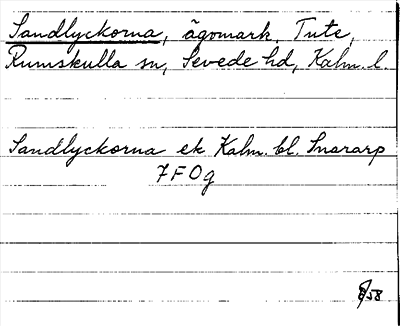 Sandlyckorna, ägomark, Tute,
Rumskulla sn, Sevede hd, Kalm. l.
Sandlyckorna ek Kalm. bl. Snararp
7F0g
58